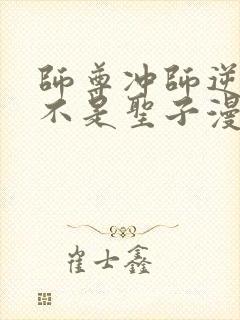 師尊冲師逆
不是聖子漫
崔士鑫